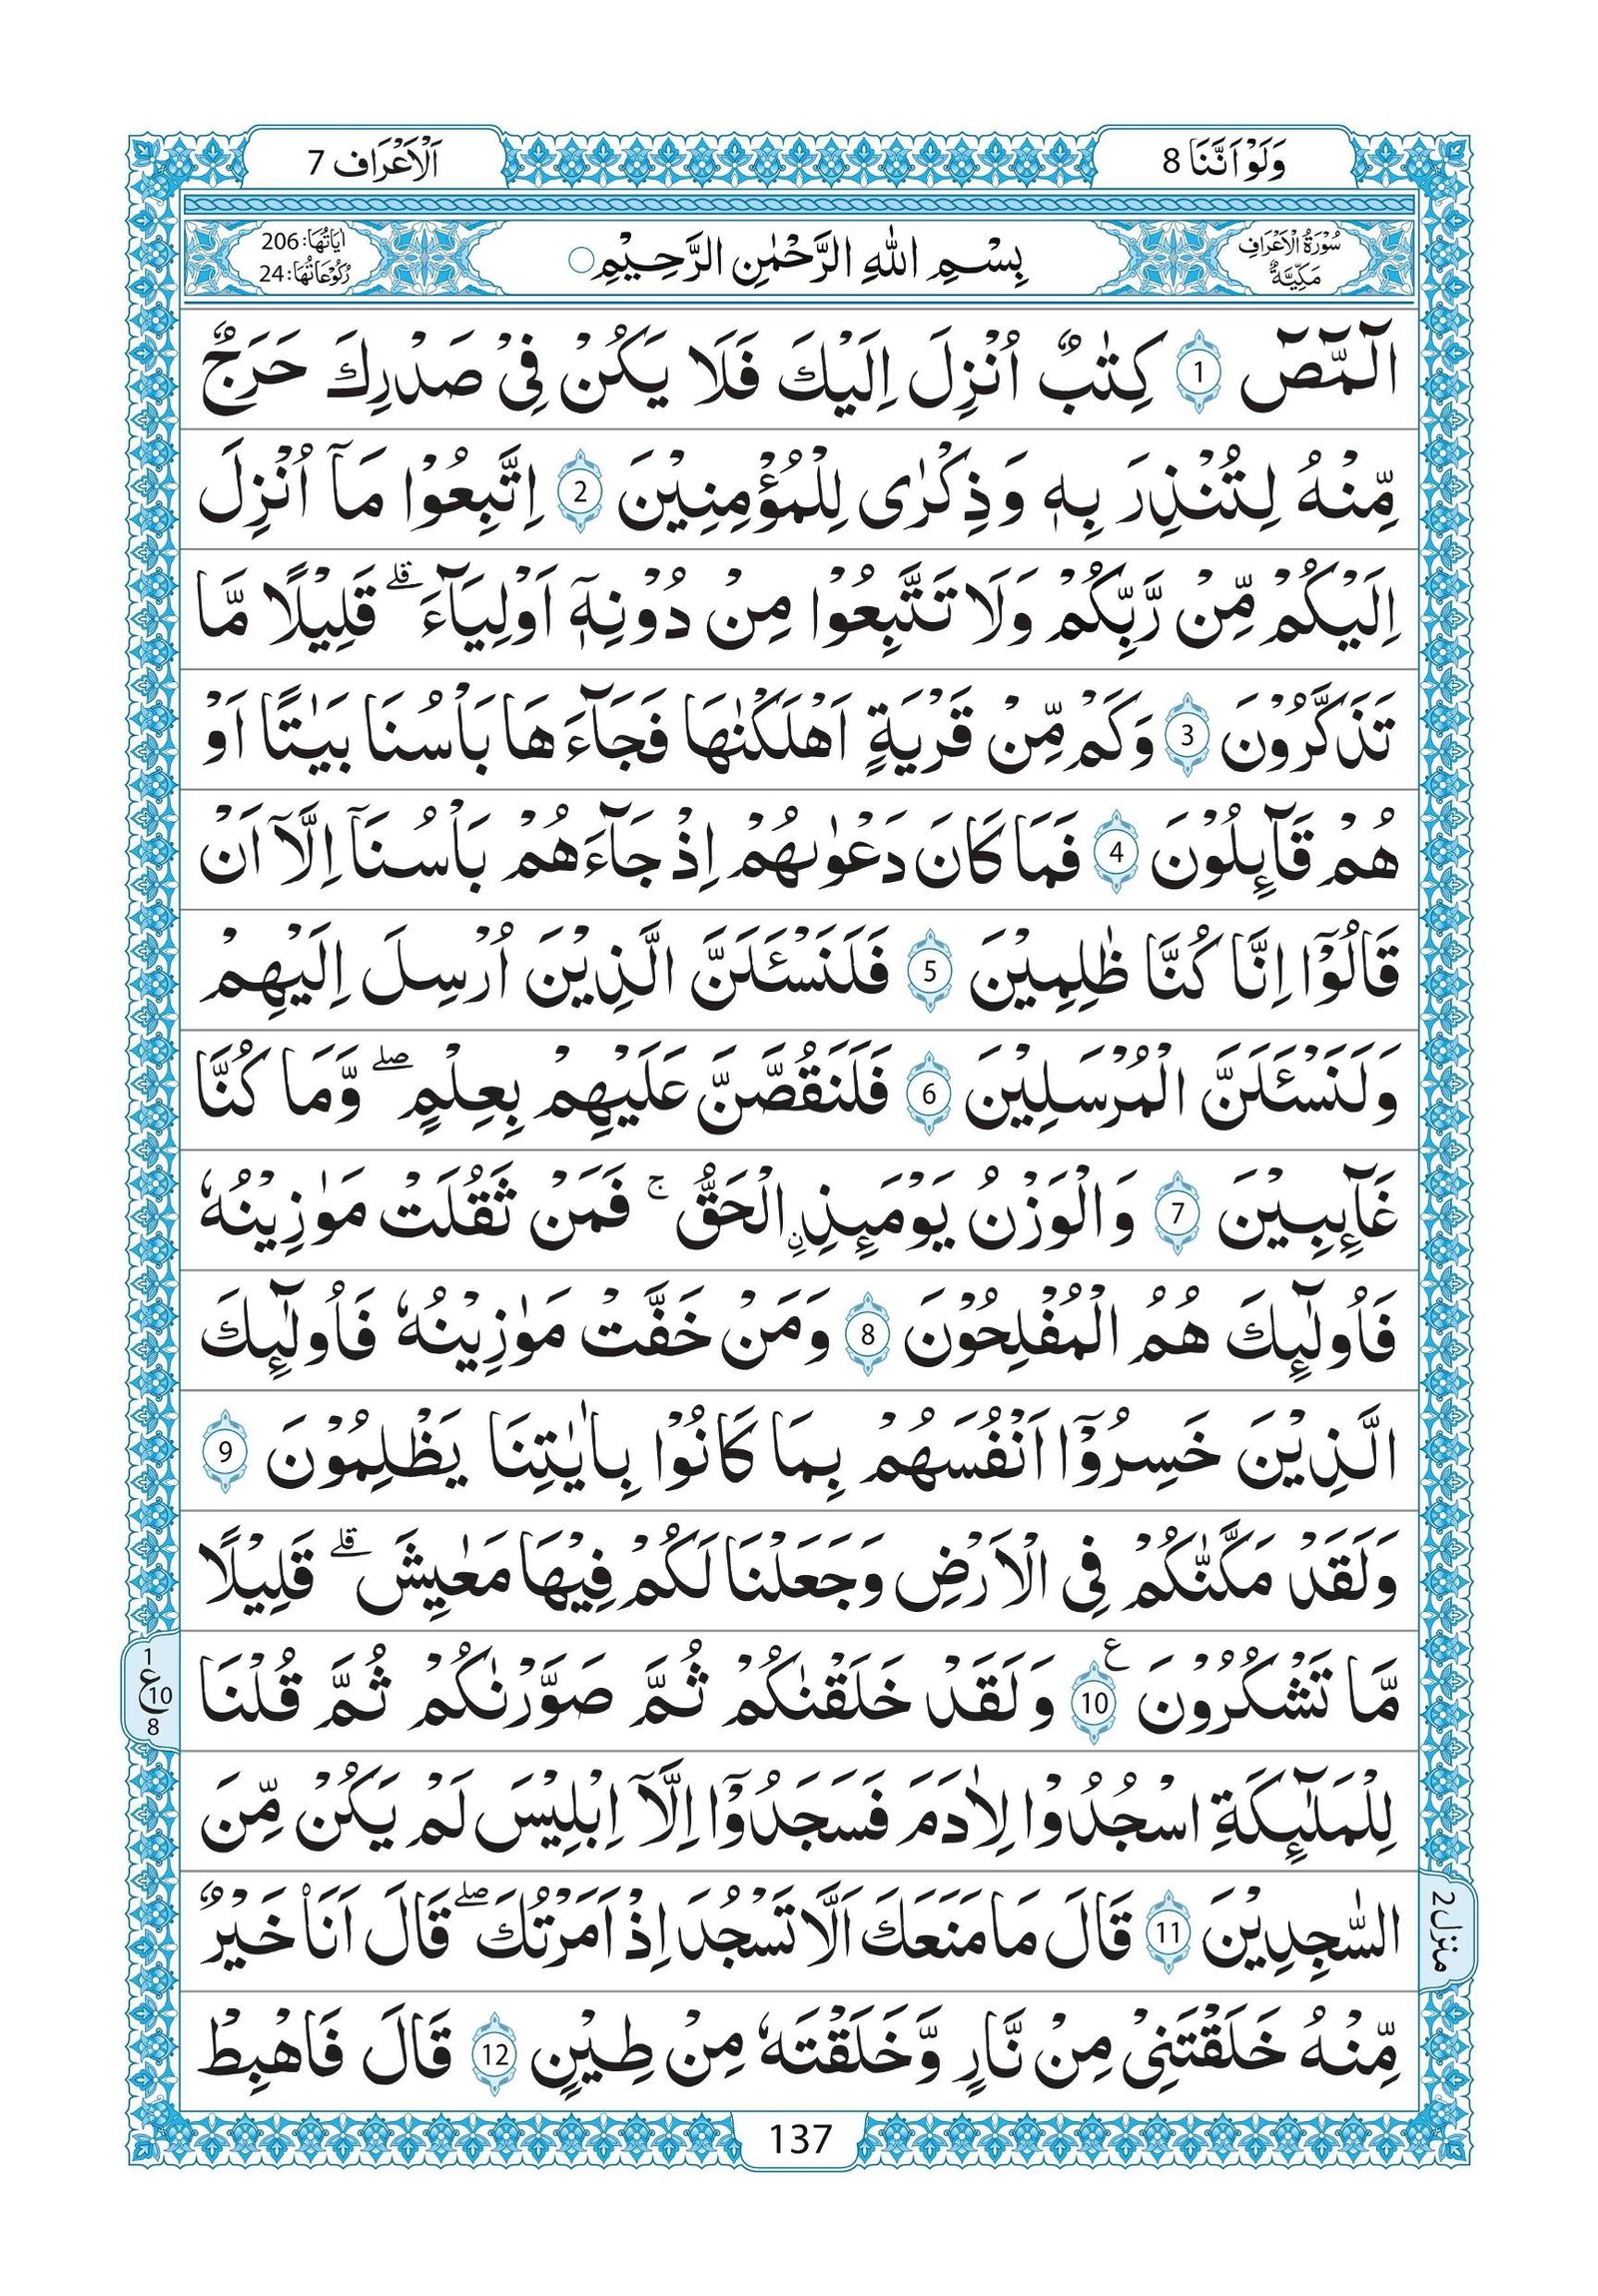 وَلَوْ اَنَّنَا 8
اَلْاَعْرَاف 7
سُوْرَةُ الْاَعْرَافِ
مَكِّيَّةٌ
بِسْمِ اللّٰهِ الرَّحْمٰنِ الرَّحِيْمِ○
اٰيَاتُهَا: 206
رُكُوْعَاتُهَا: 24
الٓمّٓصٓ 1 كِتٰبٌ اُنْزِلَ اِلَيْكَ فَلَا يَكُنْ فِىْ صَدْرِكَ حَرَجٌ
مِّنْهُ لِتُنْذِرَ بِهٖ وَذِكْرٰى لِلْمُؤْمِنِيْنَ 2 اِتَّبِعُوْا مَآ اُنْزِلَ
اِلَيْكُمْ مِّنْ رَّبِّكُمْ وَلَا تَتَّبِعُوْا مِنْ دُوْنِهٖٓ اَوْلِيَآءَ ۗ قَلِيْلًا مَّا
تَذَكَّرُوْنَ 3 وَكَمْ مِّنْ قَرْيَةٍ اَهْلَكْنٰهَا فَجَآءَهَا بَاْسُنَا بَيٰتًا اَوْ
هُمْ قَآئِلُوْنَ 4 فَمَا كَانَ دَعْوٰىهُمْ اِذْ جَآءَهُمْ بَاْسُنَآ اِلَّآ اَنْ
قَالُوْٓا اِنَّا كُنَّا ظٰلِمِيْنَ 5 فَلَنَسْـَٔلَنَّ الَّذِيْنَ اُرْسِلَ اِلَيْهِمْ
وَلَنَسْـَٔلَنَّ الْمُرْسَلِيْنَ 6 فَلَنَقُصَّنَّ عَلَيْهِمْ بِعِلْمٍ ۖ وَّمَا كُنَّا
غَآئِبِيْنَ 7 وَالْوَزْنُ يَوْمَئِذِ ِۨالْحَقُّ ۚ فَمَنْ ثَقُلَتْ مَوٰزِيْنُهٗ
فَاُولٰٓئِكَ هُمُ الْمُفْلِحُوْنَ 8 وَمَنْ خَفَّتْ مَوٰزِيْنُهٗ فَاُولٰٓئِكَ
الَّذِيْنَ خَسِرُوْٓا اَنْفُسَهُمْ بِمَا كَانُوْا بِاٰيٰتِنَا يَظْلِمُوْنَ 9
وَلَقَدْ مَكَّنّٰكُمْ فِى الْاَرْضِ وَجَعَلْنَا لَكُمْ فِيْهَا مَعٰيِشَ ۗ قَلِيْلًا
مَّا تَشْكُرُوْنَ 10 ع وَلَقَدْ خَلَقْنٰكُمْ ثُمَّ صَوَّرْنٰكُمْ ثُمَّ قُلْنَا
1
ع 10
8
لِلْمَلٰٓئِكَةِ اسْجُدُوْا لِاٰدَمَ فَسَجَدُوْٓا اِلَّآ اِبْلِيْسَ لَمْ يَكُنْ مِّنَ
السّٰجِدِيْنَ 11 قَالَ مَا مَنَعَكَ اَلَّا تَسْجُدَ اِذْ اَمَرْتُكَ ۖ قَالَ اَنَا۠ خَيْرٌ
منزل 2
مِّنْهُ خَلَقْتَنِىْ مِنْ نَّارٍ وَّخَلَقْتَهٗ مِنْ طِيْنٍ 12 قَالَ فَاهْبِطْ
137